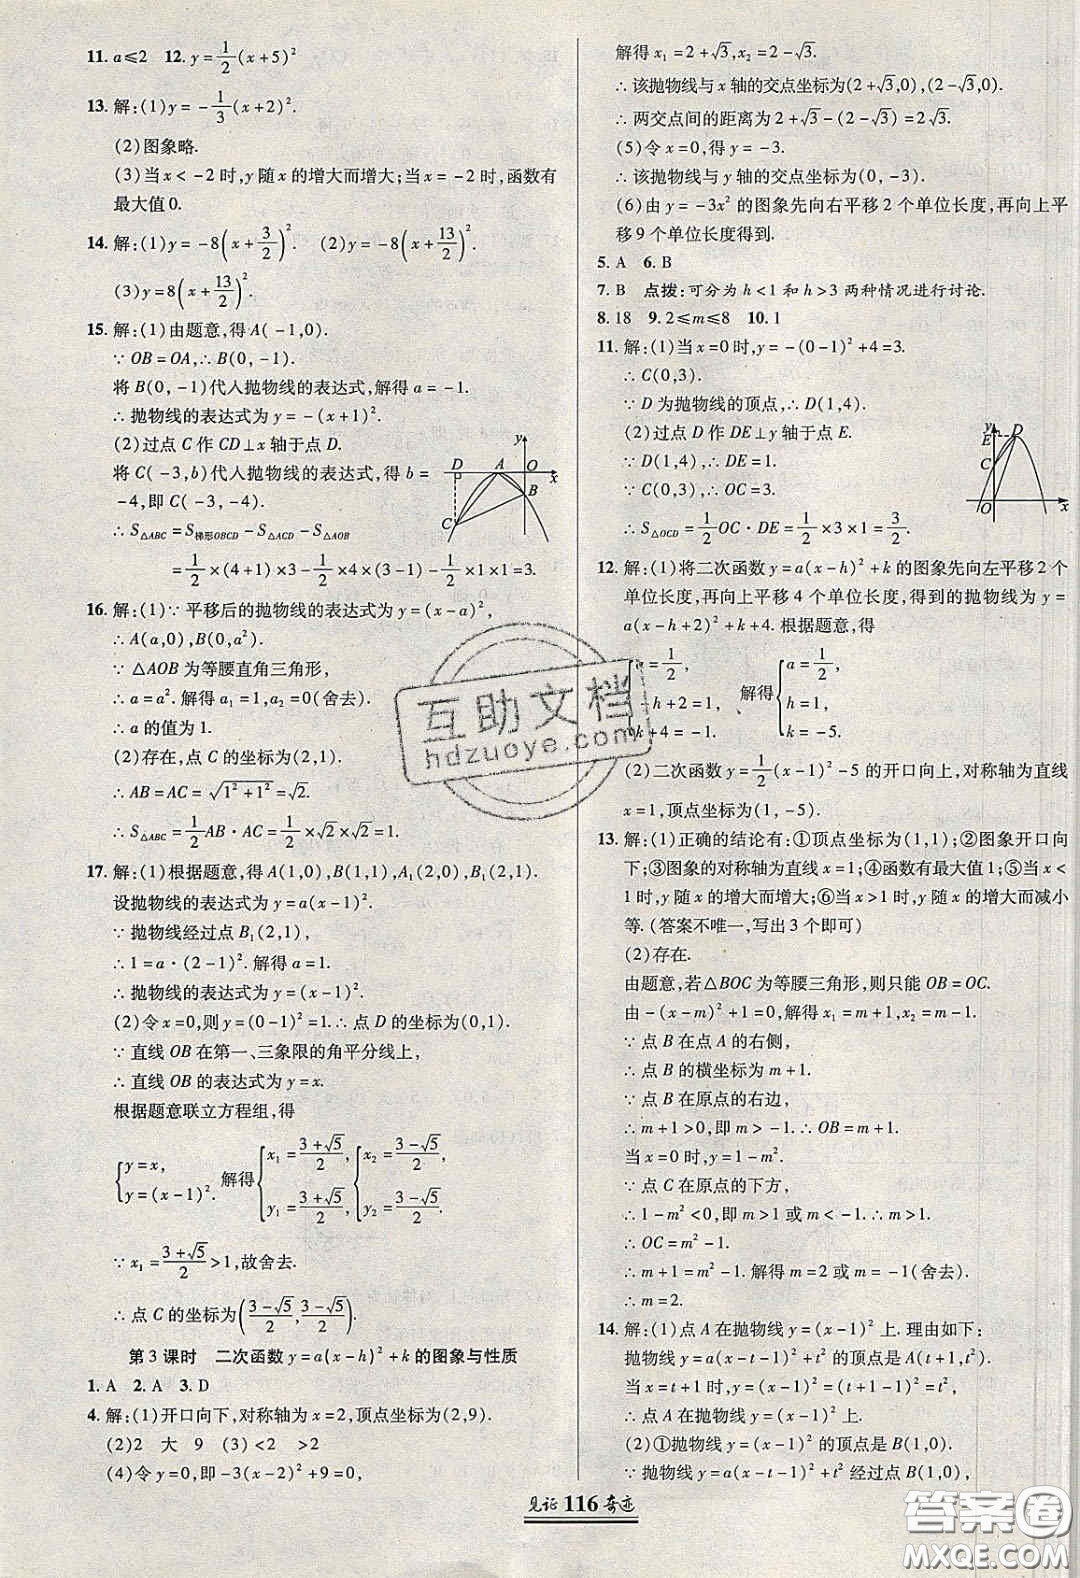 11. a≤2　12. y=1/2(x+5)²
13. 解:(1)y=-1/3(x+2)².
(2)图象略.
(3)当x<-2时,y随x的增大而增大;当x=-2时,函数有
最大值0.
14. 解:(1)y=-8(x+3/2)².　(2)y=-8(x+13/2)².
(3)y=8(x+13/2)².
15. 解:(1)由题意,得A(-1,0).
∵OB=OA,∴B(0,-1).
将B(0,-1)代入抛物线的表达式,解得a=-1.
∴抛物线的表达式为y=-(x+1)².
(2)过点C作CD⊥x轴于点D.
将C(-3,b)代入抛物线的表达式,得b=
-4,即C(-3,-4).
∴S△ABC=S梯形OBCD-S△ACD-S△AOB
=1/2×(4+1)×3-1/2×4×(3-1)-1/2×1×1=3.
y
D A O
x
B
C
16. 解:(1)∵平移后的抛物线的表达式为y=(x-a)²,
∴A(a,0),B(0,a²).
∵△AOB为等腰直角三角形,
∴a=a².解得a₁=1,a₂=0(舍去).
∴a的值为1.
(2)存在,点C的坐标为(2,1).
∴AB=AC=√(1²+1²)=√2.
∴S△ABC=1/2AB·AC=1/2×√2×√2=1.
17. 解:(1)根据题意,得A(1,0),B(1,1),A₁(2,0),B₁(2,1).
设抛物线的表达式为y=a(x-1)².
∵抛物线经过点B₁(2,1),
∴1=a·(2-1)².解得a=1.
∴抛物线的表达式为y=(x-1)².
(2)令x=0,则y=(0-1)²=1.∴点D的坐标为(0,1).
∵直线OB在第一、三象限的角平分线上,
∴直线OB的表达式为y=x.
根据题意联立方程组,得
{y=x, y=(x-1)². 解得{x₁=(3+√5)/2, y₁=(3+√5)/2, {x₂=(3-√5)/2, y₂=(3-√5)/2.
∵x₁=(3+√5)/2>1,故舍去.
∴点C的坐标为((3-√5)/2,(3-√5)/2).
第3课时　二次函数y=a(x-h)²+k的图象与性质
1. A　2. A　3. D
4. 解:(1)开口向下,对称轴为x=2,顶点坐标为(2,9).
(2)2　大　9　(3)<2　>2
(4)令y=0,即-3(x-2)²+9=0,
解得x₁=2+√3,x₂=2-√3.
∴该抛物线与x轴的交点坐标为(2+√3,0),(2-√3,0).
∴两交点间的距离为2+√3-(2-√3)=2√3.
(5)令x=0,得y=-3.
∴该抛物线与y轴的交点坐标为(0,-3).
(6)由y=-3x²的图象先向右平移2个单位长度,再向上平
移9个单位长度得到.
5. A　6. B
7. B　点拨:可分为h<1和h>3两种情况进行讨论.
8. 18　9. 2≤m≤8　10. 1
11. 解:(1)当x=0时,y=-(0-1)²+4=3.
∴C(0,3).
∵D为抛物线的顶点,∴D(1,4).
(2)过点D作DE⊥y轴于点E.
∵D(1,4),∴DE=1.
∵C(0,3),∴OC=3.
∴S△OCD=1/2OC·DE=1/2×3×1=3/2.
y
E D
C
O x
12. 解:(1)将二次函数y=a(x-h)²+k的图象先向左平移2个
单位长度,再向上平移4个单位长度,得到的抛物线为y=
a(x-h+2)²+k+4.根据题意,得
{a=1/2, -h+2=1, k+4=-1. 解得{a=1/2, h=1, k=-5.
(2)二次函数y=1/2(x-1)²-5的开口向上,对称轴为直线
x=1,顶点坐标为(1,-5).
13. 解:(1)正确的结论有:①顶点坐标为(1,1);②图象开口向
下;③图象的对称轴为直线x=1;④函数有最大值1;⑤当x<
1时,y随x的增大而增大;⑥当x>1时,y随x的增大而减小
等.(答案不唯一,写出3个即可)
(2)存在.
由题意,若△BOC为等腰三角形,则只能OB=OC.
由-(x-m)²+1=0,解得x₁=m+1,x₂=m-1.
∵点B在点A的右侧,
∴点B的横坐标为m+1.
∵点B在原点的右边,
∴m+1>0,即m>-1.∴OB=m+1.
当x=0时,y=1-m².
∵点C在原点的下方,
∴1-m²<0,即m>1或m<-1.∴m>1.
∴OC=m²-1.
∴m+1=m²-1.解得m=2或m=-1(舍去).
∴m=2.
14. 解:(1)点A在抛物线y=(x-1)²上.理由如下:
抛物线y=a(x-t-1)²+t²的顶点是A(t+1,t²).
当x=t+1时,y=(x-1)²=(t+1-1)²=t²,
∴点A在抛物线y=(x-1)²上.
(2)①抛物线y=(x-1)²的顶点是B(1,0).
∵抛物线y=a(x-t-1)²+t²经过点B(1,0),
见证116奇迹
互助文档
hdzuoye.com
答案圈
MXQE.COM